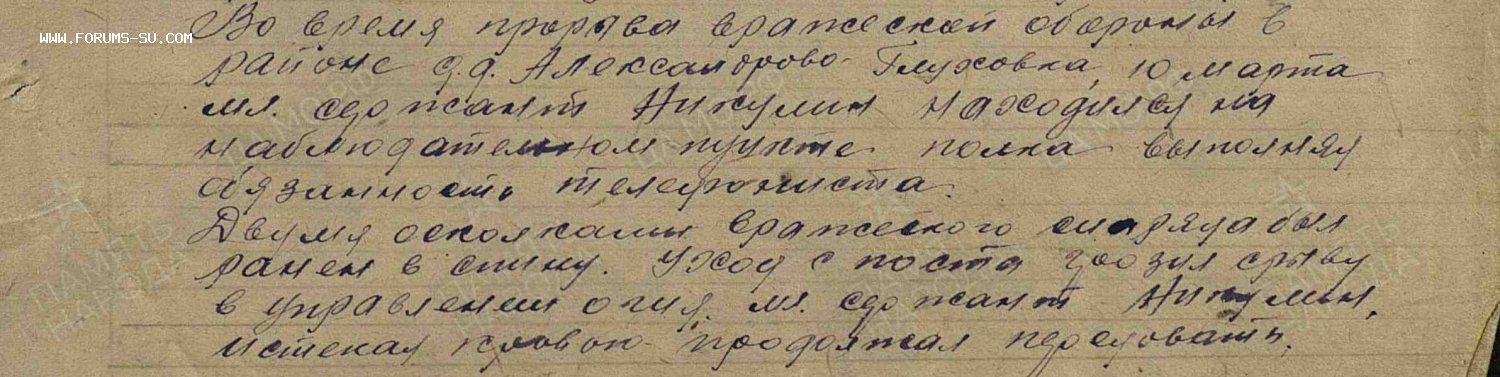 Во время прорыва вражеской обороны в
WWW.FORUMS-SU.COM
районе д.д. Александрово- Глуховка, 10 марта
мл. сержант Никулин находился на
наблюдательном пункте полка выполняя
обязанность телефониста.
Двумя осколками вражеского снаряда был
ранен в спину. Уход с поста грозил срыву
в управлении огня. мл. сержант Никулин,
истекая кровью продолжал передовать.
ПАМЯТЬ НАРОДА